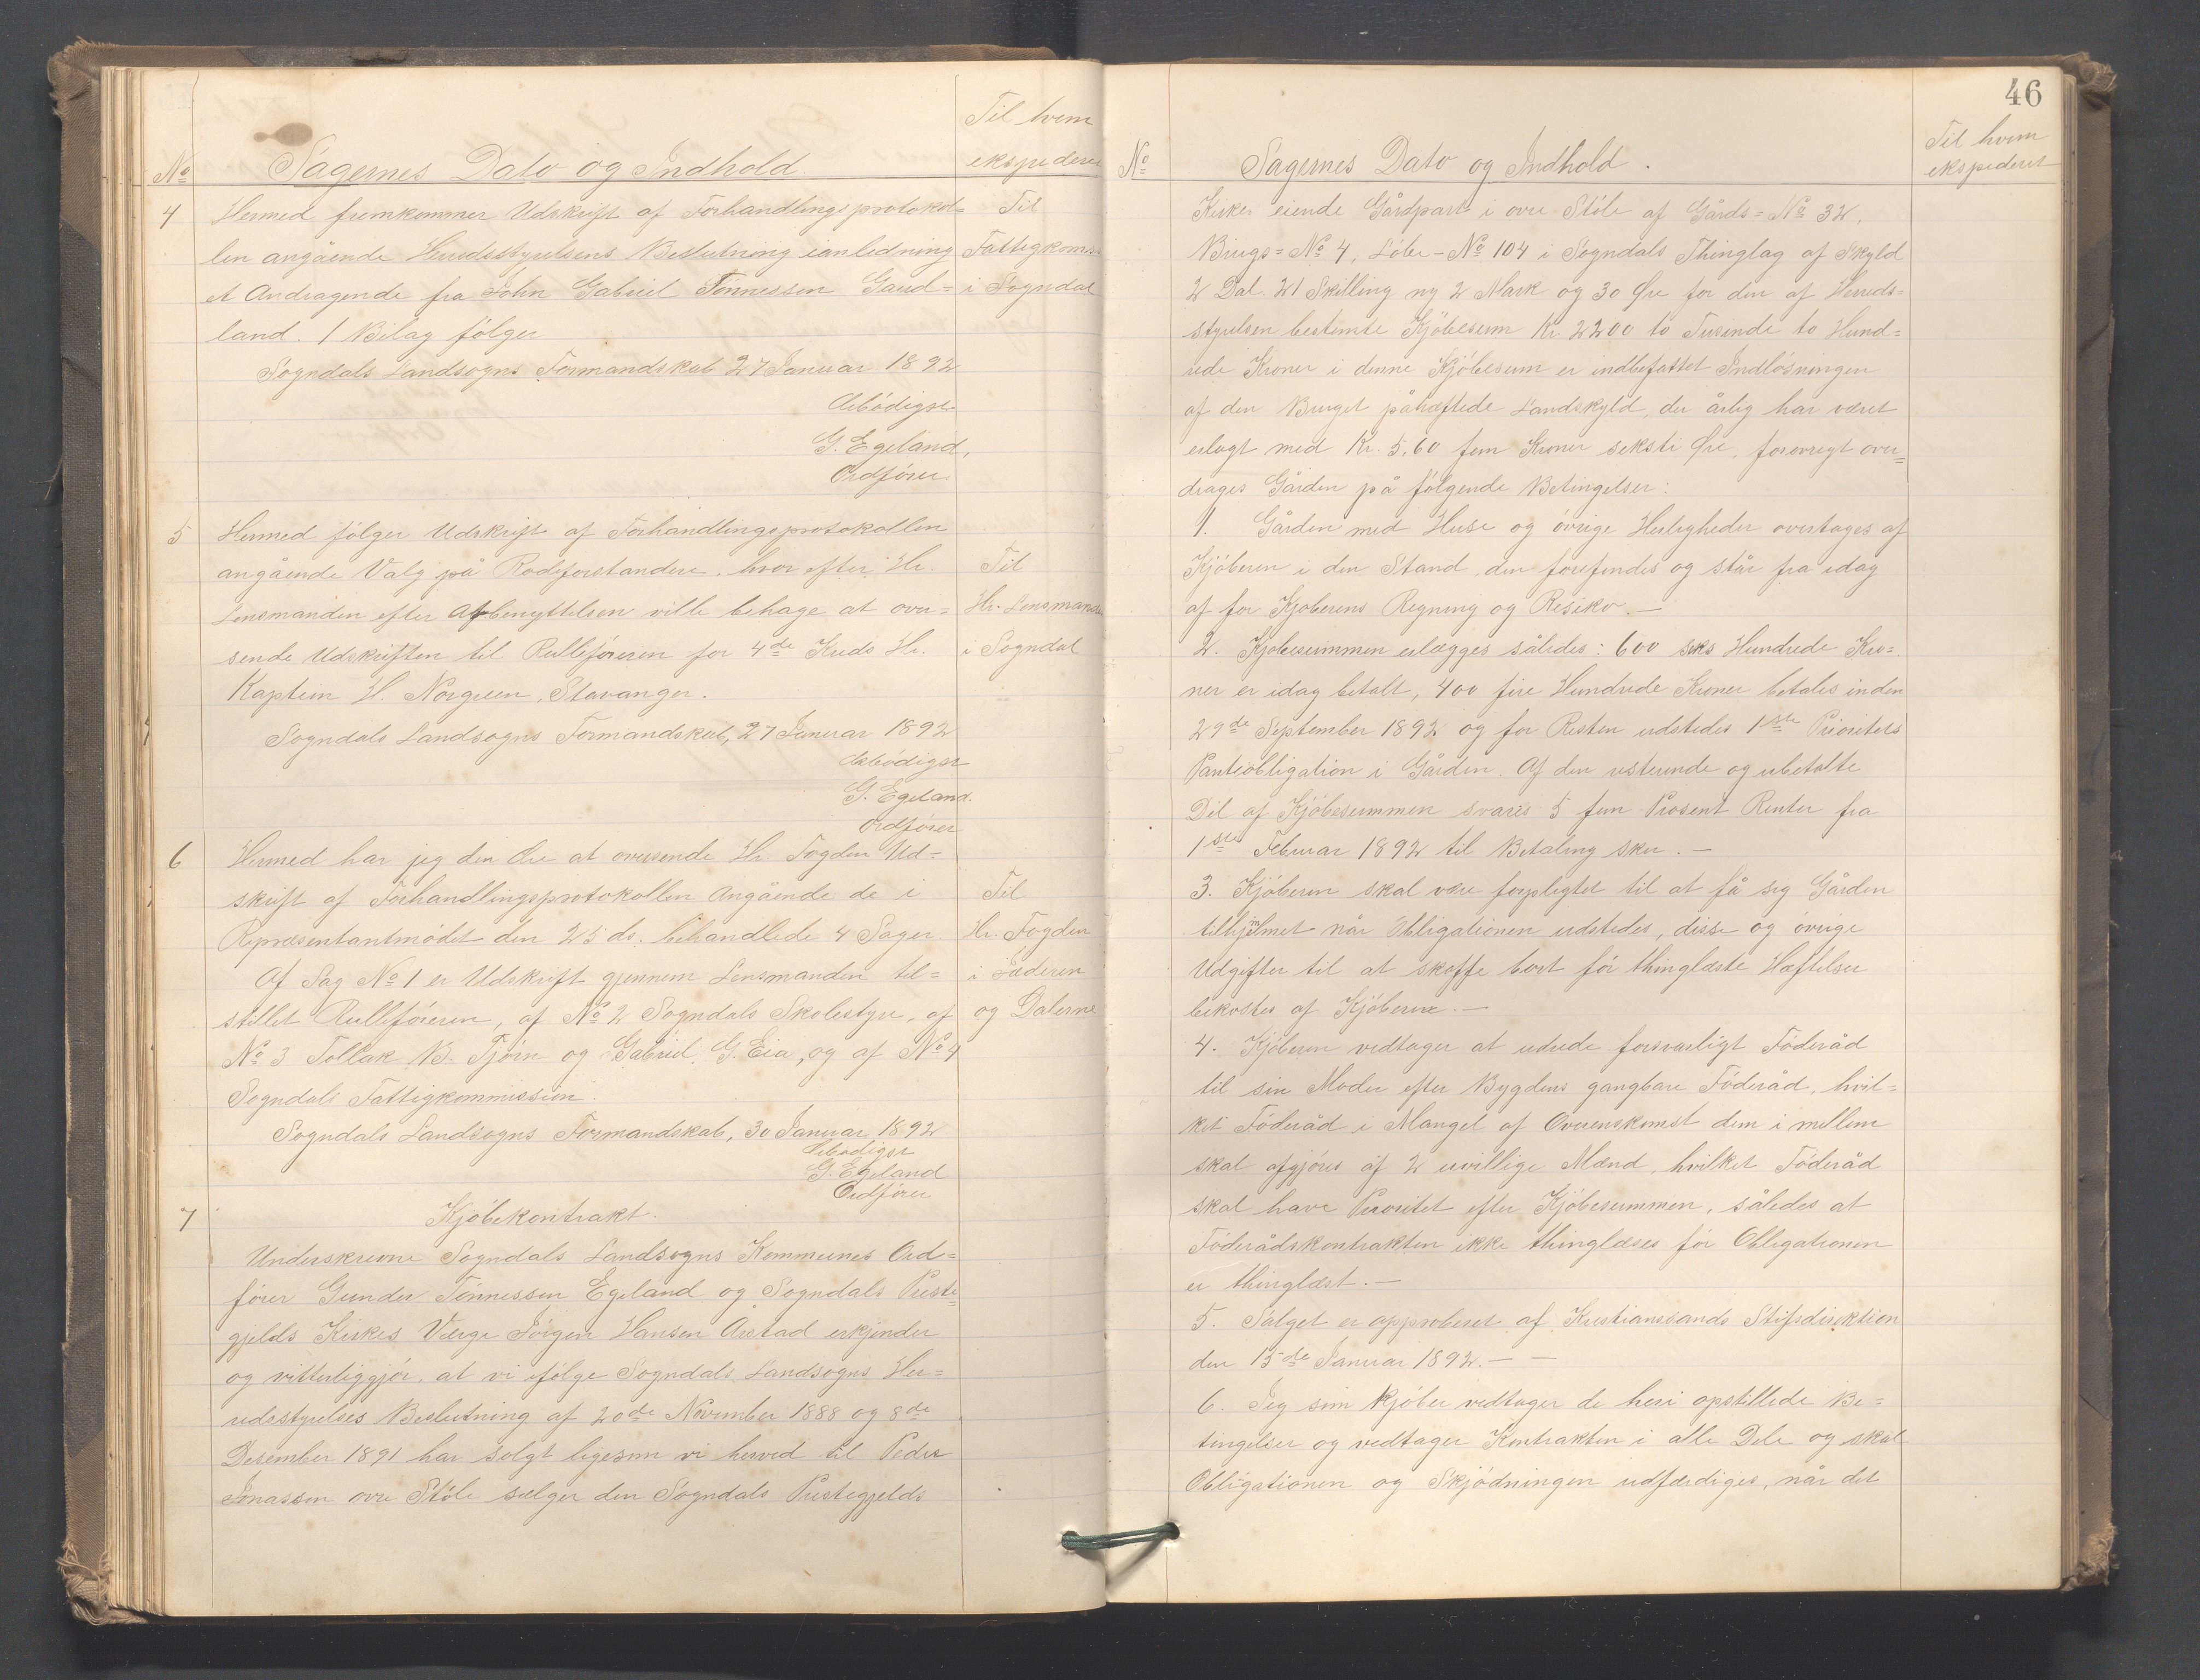 No
Sagernes Dato og Indhold.
Til hvem
ekspederes
4
Hermed fremkommer Udskrift af Forhandlingsprotokol=
len angående Herredsstyrelsens Beslutning ianledning
et Andragende fra John Gabriel Tønnessen Gaud=
land. 1 Bilag følger
Til
Fattigkoms.
i Sogndal
Sogndals Landsogns Formandskab 27 Januar 1892
Ærbødigst
G. Egeland,
Ordfører.
5
Hermed følger Udskrift af Forhandlingsprotokollen
angående Valg på Rodeforstandere, hvor efter Hr.
Lensmanden efter Afbenyttelsen ville behage at over=
sende Udskriften til Rulleføreren for 4de Kreds Hr.
Kaptein H. Norgreen, Stavanger.
Til
Hr. Lensmanden
i Sogndal
Sogndals Landsogns Formandskab, 27 Januar 1892
Ærbødigst
G. Egeland.
Ordfører
6
Hermed har jeg den Ære at oversende Hr. Fogden Ud=
skrift af Forhandlingsprotokollen angående de i
Repræsentantmødet den 25 ds. behandlede 4 Sager.
Af Sag No 1 er Udskrift gjennem Lensmanden til=
stillet Rulleføreren, af No 2 Sogndals Skolestyre, af
No 3 Tollak B. Tjørn og Gabriel G. Eia, og af No 4
Sogndals Fattigkommission.
Til
Hr. Fogden
i Jæderen
og Dalerne
Sogndals Landsogns Formandskab, 30 Januar 1892
Ærbødigst
G. Egeland
Ordfører
7
Kjøbekontrakt.
Underskrevne Sogndals Landsogns Kommunes Ord=
fører Gunder Tønnessen Egeland og Sogndals Præste=
gjelds Kirkes Værge Jørgen Hansen Årstad erkjender
og vitterliggjør, at vi ifølge Sogndals Landsogns Her=
redsstyrelses Beslutning af 20de November 1888 og 8de
Desember 1891 har solgt ligesom vi herved til Peder
Jonassen øvre Støle sælger den Sogndals Præstegjelds
46
No
Sagernes Dato og Indhold.
Til hvem
ekspederet
Kirkes eiende Gårdpart i øvre Støle af Gårds=No 32.
Brugs=No 4, Løbe-No 104 i Sogndals Thinglag af Skyld
2 Dal. 21 Skilling ny 2 Mark og 30 Øre for den af Herreds=
styrelsen bestemte Kjøbesum Kr 2200 to Tusende to Hund=
rede Kroner i denne Kjøbesum er indbefattet Indløsningen
af den Bruget påhæftede Landskyld, der årlig har været
erlagt med Kr. 5,60 fem Kroner seksti Øre, forøvrigt over=
drages Gården på følgende Betingelser:
1. Gården med Huse og øvrige Herligheder overtages af
Kjøberen i den Stand den forefindes og står fra idag
af for Kjøberens Regning og Risiko.—
2. Kjøbesummen erlægges således: 600 seks Hundrede Kro=
ner er idag betalt, 400 fire Hundrede Kroner betales inden
29de September 1892 og for Resten udstedes 1ste Prioritets
Panteobligation i Gården. Af den resterende og ubetalte
Del af Kjøbesummen svares 5 fem Prosent Renter fra
1ste Februar 1892 til Betaling sker.—
3. Kjøberen skal være forpligtet til at få sig Gården
tilhjemlet når Obligationen udstedes, disse og øvrige
Udgifter til at skaffe bort før thinglæste Hæftelser
bekostes af Kjøberen.—
4. Kjøberen vedtager at udrede forsvarligt Føderåd
til sin Moder efter Bygdens gangbare Føderåd, hvil=
ket Føderåd i Mangel af Overenskomst dem i mellem
skal afgjøres af 2 uvillige Mænd, hvilket Føderåd
skal have Prioritet efter Kjøbesummen, således at
Føderådskontrakten ikke thinglæses før Obligationen
er thinglæst.—
5. Salget er approberet af Kristianssands Stifsdirektion
den 15de Januar 1892.— —
6. Jeg som Kjøber vedtager de heri opstillede Be=
tingelser og vedtager Kontrakten i alle Dele og skal
Obligationen og Skjødningen udfærdiges, når det